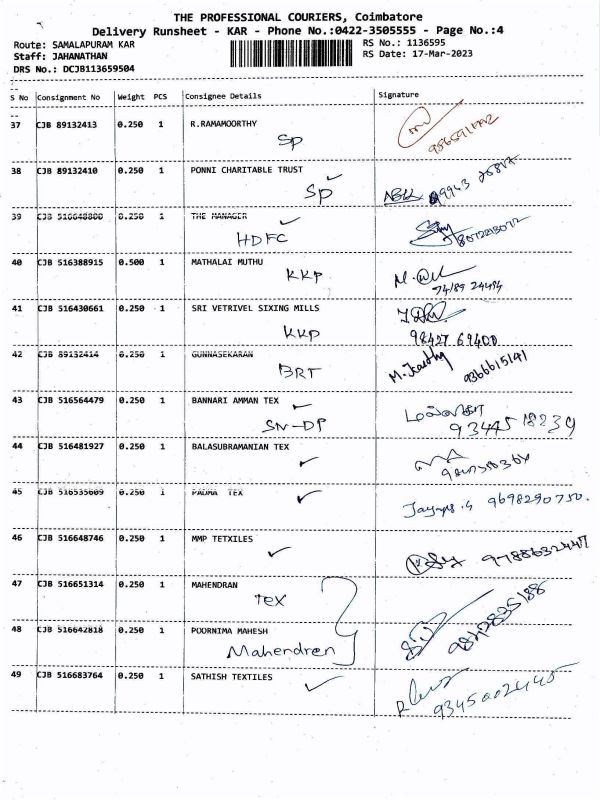 THE PROFESSIONAL COURIERS, Coimbatore
Delivery Runsheet - KAR - Phone No.:0422-3505555 - Page No.:4
Route: SAMALAPURAM KAR
RS No.: 1136595
Staff: JAHANATHAN
RS Date: 17-Mar-2023
DRS No.: DCJB113659504
S No Consignment No Weight PCS Consignee Details Signature
37 CJB 89132413 0.250 1 R.RAMAMOORTHY
SP
38 CJB 89132410 0.250 1 PONNI CHARITABLE TRUST
SP
39 CJB 516648800 0.250 1 THE MANAGER
HDFC
40 CJB 516388915 0.500 1 MATHALAI MUTHU
KKP
41 CJB 516430661 0.250 1 SRI VETRIVEL SIXING MILLS
KKP 98427 69400
42 CJB 89132414 0.250 1 GUNNASEKARAN
BRT 9366615141
43 CJB 516564479 0.250 1 BANNARI AMMAN TEX
SN-DP
44 CJB 516481927 0.250 1 BALASUBRAMANIAN TEX
45 CJB 516535609 0.250 1 PADMA TEX
9698290750.
46 CJB 516648746 0.250 1 MMP TETXILES
9788632447
47 CJB 516651314 0.250 1 MAHENDRAN
Tex
48 CJB 516642818 0.250 1 POORNIMA MAHESH
Mahendren
49 CJB 516683764 0.250 1 SATHISH TEXTILES